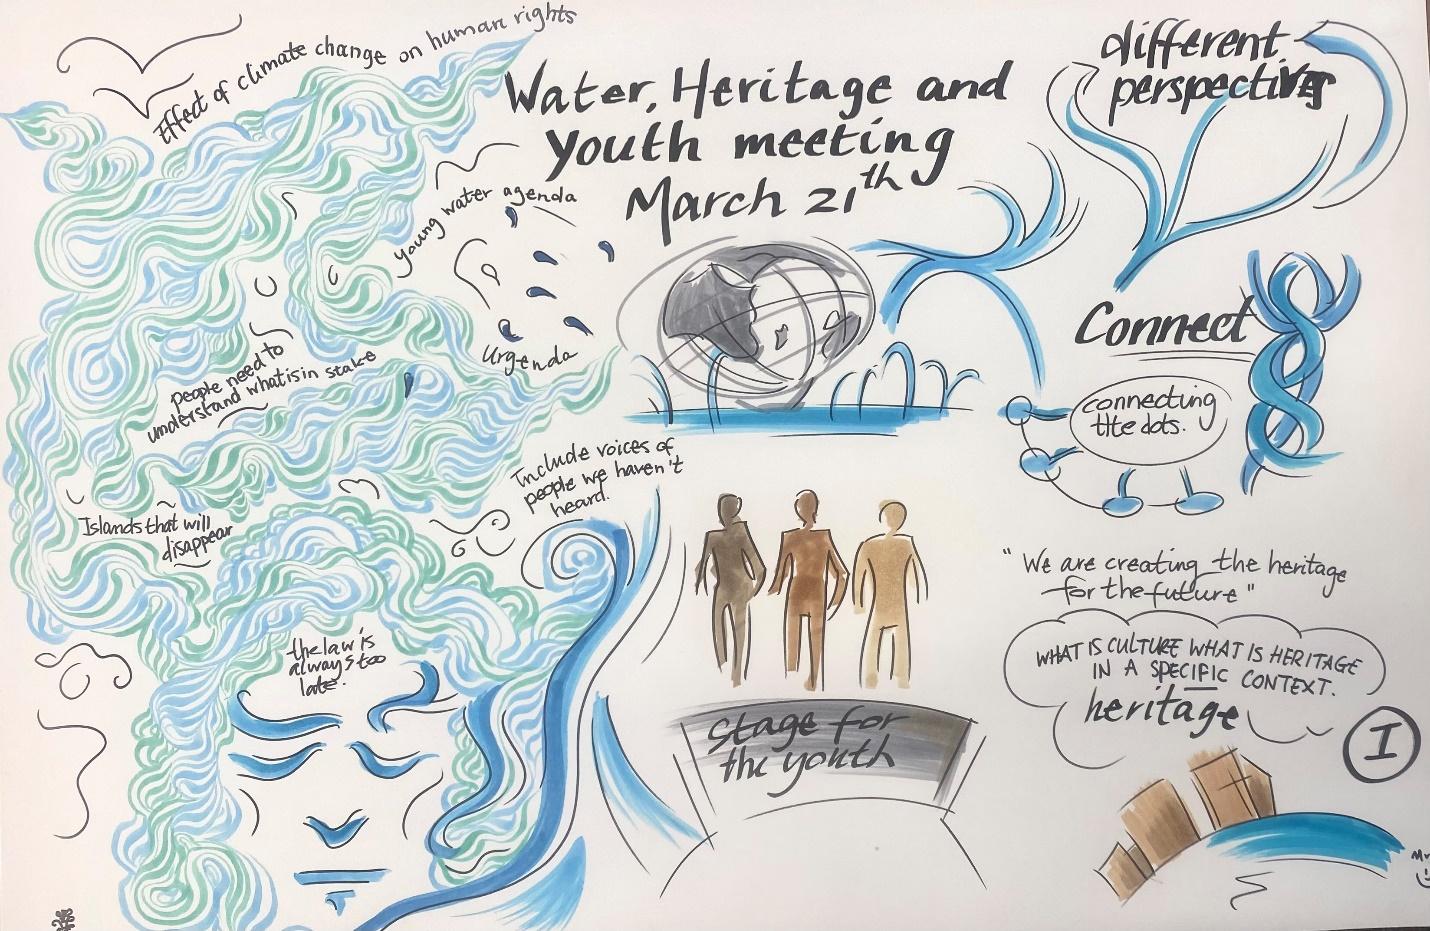 Effect of climate change on human rights
Water, Heritage and
Youth meeting
March 21th
different
perspectives
young water agenda
Urgenda
people need to
understand what is in stake
Connect
connecting
the dots.
Include voices of
people we haven't
heard.
Islands that will
disappear
"We are creating the heritage
for the future"
WHAT IS CULTURE WHAT IS HERITAGE
IN A SPECIFIC CONTEXT.
heritage
the law is
always too
late.
Stage for
the youth
I